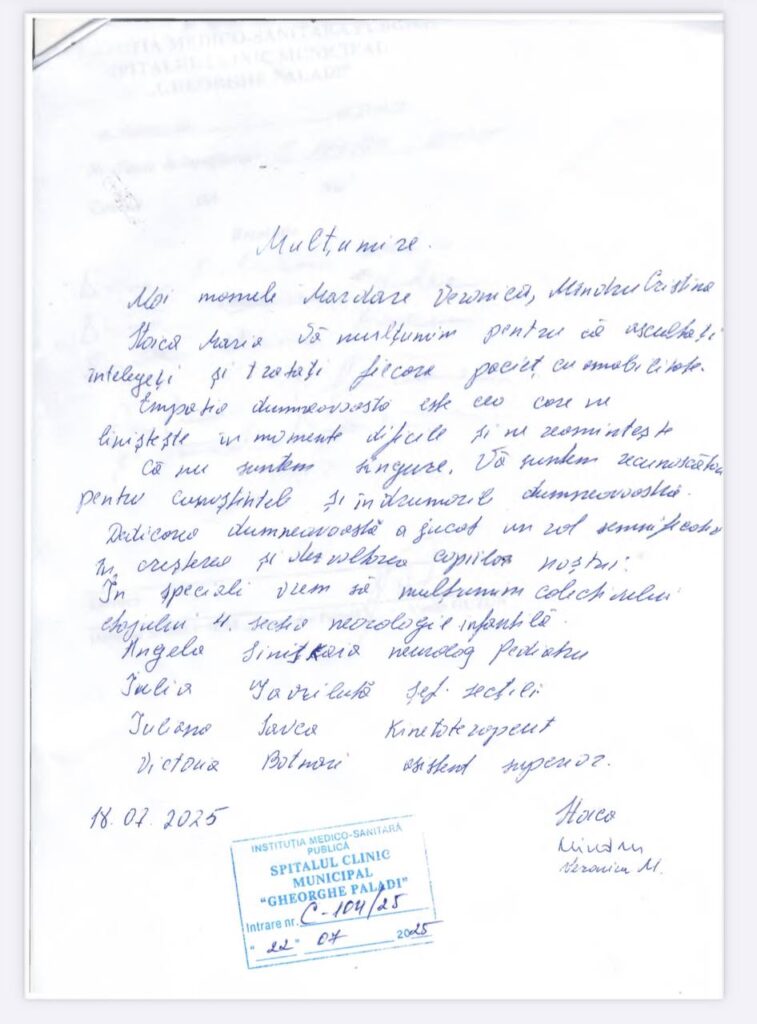 Mulțumire.
Noi mamele Mardare Veronica, Mîndru Cristina
Stoica Maria Vă mulțumim pentru că ascultați
întelegeți și tratați fiecare paciet, cu amabilitate.
Empatia dumneavoasta este cea care ne
liniștește în momente dificile și ne reamintește
că nu suntem singure. Vă suntem recunoscători
pentru cunoștintele și îndrumarile dumneavoastă.
Dedicarea dumneavoastă a jucat un rol semnificativ
în creșterea și dezvoltarea copiilor noștri.
În speciali vrem să multumim colectivului
etajului 4. sectia neorologie infantilă.
Angela neurolog Pediatru
Iulia Gavriluță șef. secției
Iuliana Savca Kinetoterapeut
Victoria Botnari asistent superior.
18.07.2025
Stoica
Mîndru
Veronica M.
INSTITUȚIA MEDICO-SANITARĂ
PUBLICĂ
SPITALUL CLINIC
MUNICIPAL
"GHEORGHE PALADI"
Intrare nr. C-104/25
"22" 07 2025